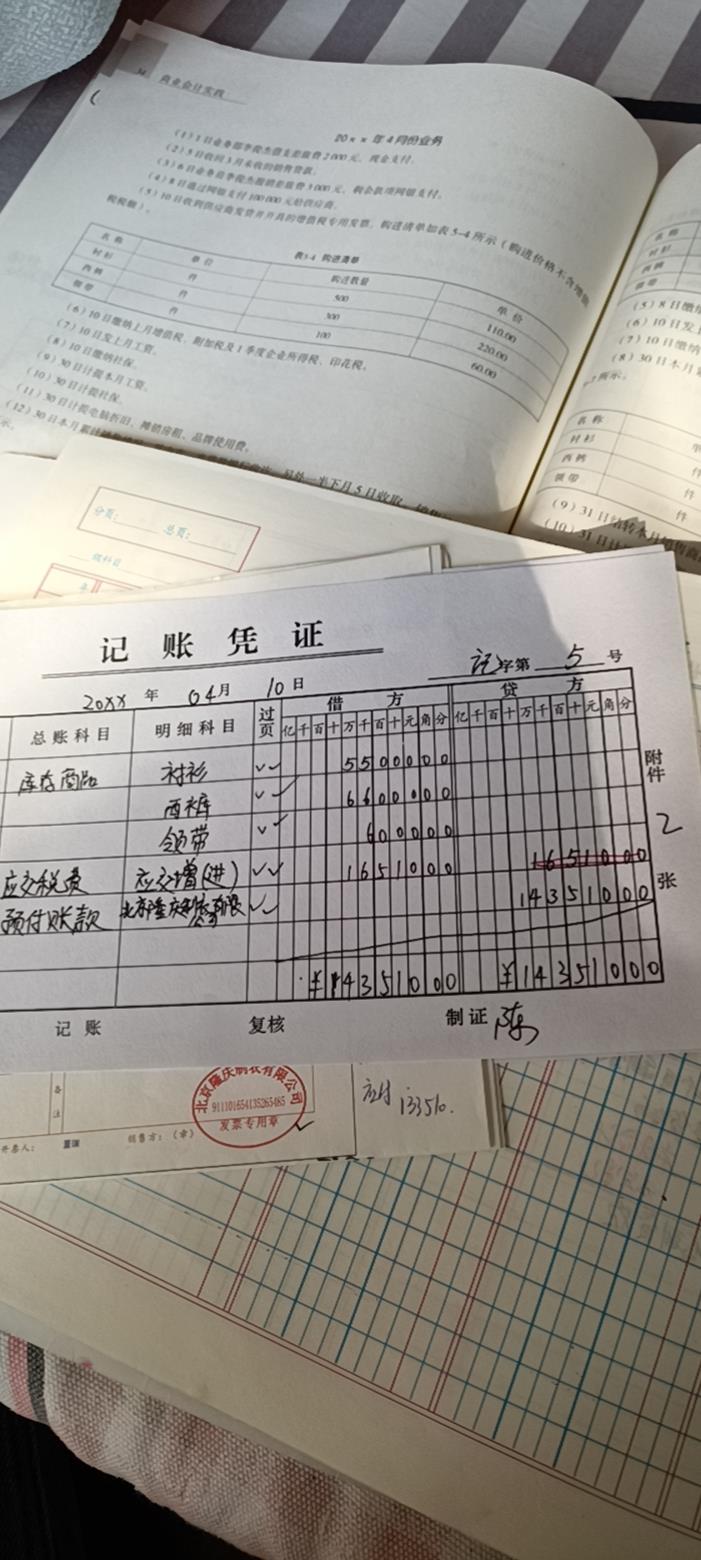 34 商业会计实践
20××年4月份业务
(1)1日业务部李俊杰借支差旅费2000元,现金支付。
(2)5日收回3月未收的销售货款。
(3)6日业务员李俊杰报销差旅费3000元,剩余款项网银支付。
(4)8日通过网银支付100000元给供应商。
(5)10日收到供应商发货并开具的增值税专用发票,购进清单如表5-4所示(购进价格不含增值
税税额)。
表5-4 购进清单
名称 单位 购进数量 单价
衬衫 件 500 110.00
西裤 件 300 220.00
领带 件 100 60.00
(6)10日缴纳上月增值税、附加税及1季度企业所得税、印花税。
(7)10日发上月工资。
(8)10日缴纳社保。
(9)30日计提本月工资。
(10)30日计提社保。
(11)30日计提电脑折旧、摊销房租、品牌使用费。
(12)30日本月累计
另外一半下月5日收取
示。
名称
衬衫
西裤
领带
(5)8日缴纳
(6)10日发上
(7)10日缴纳
(8)30日本月累
所示。
名称 单
衬衫 件
西裤 件
领带 件
(9)31日结转本月销售商品
(10)31日计
分页: 总页:
级科目
年
记账凭证
记字第 5 号
20XX 年 04月 10日
总账科目 明细科目 过页 借方 贷方
亿千百十万千百十元角分 亿千百十万千百十元角分
库存商品 衬衫 5500000
西裤 6600000
领带 600000
应交税费 应交增(进) 1651000 1651000
预付账款 14351000
¥14351000 ¥14351000
附件 2 张
记账 复核 制证 陈
备注
北京隆庆制衣有限公司
911101654135265485
发票专用章
应付 133510.
开票人: 销售方:(章)